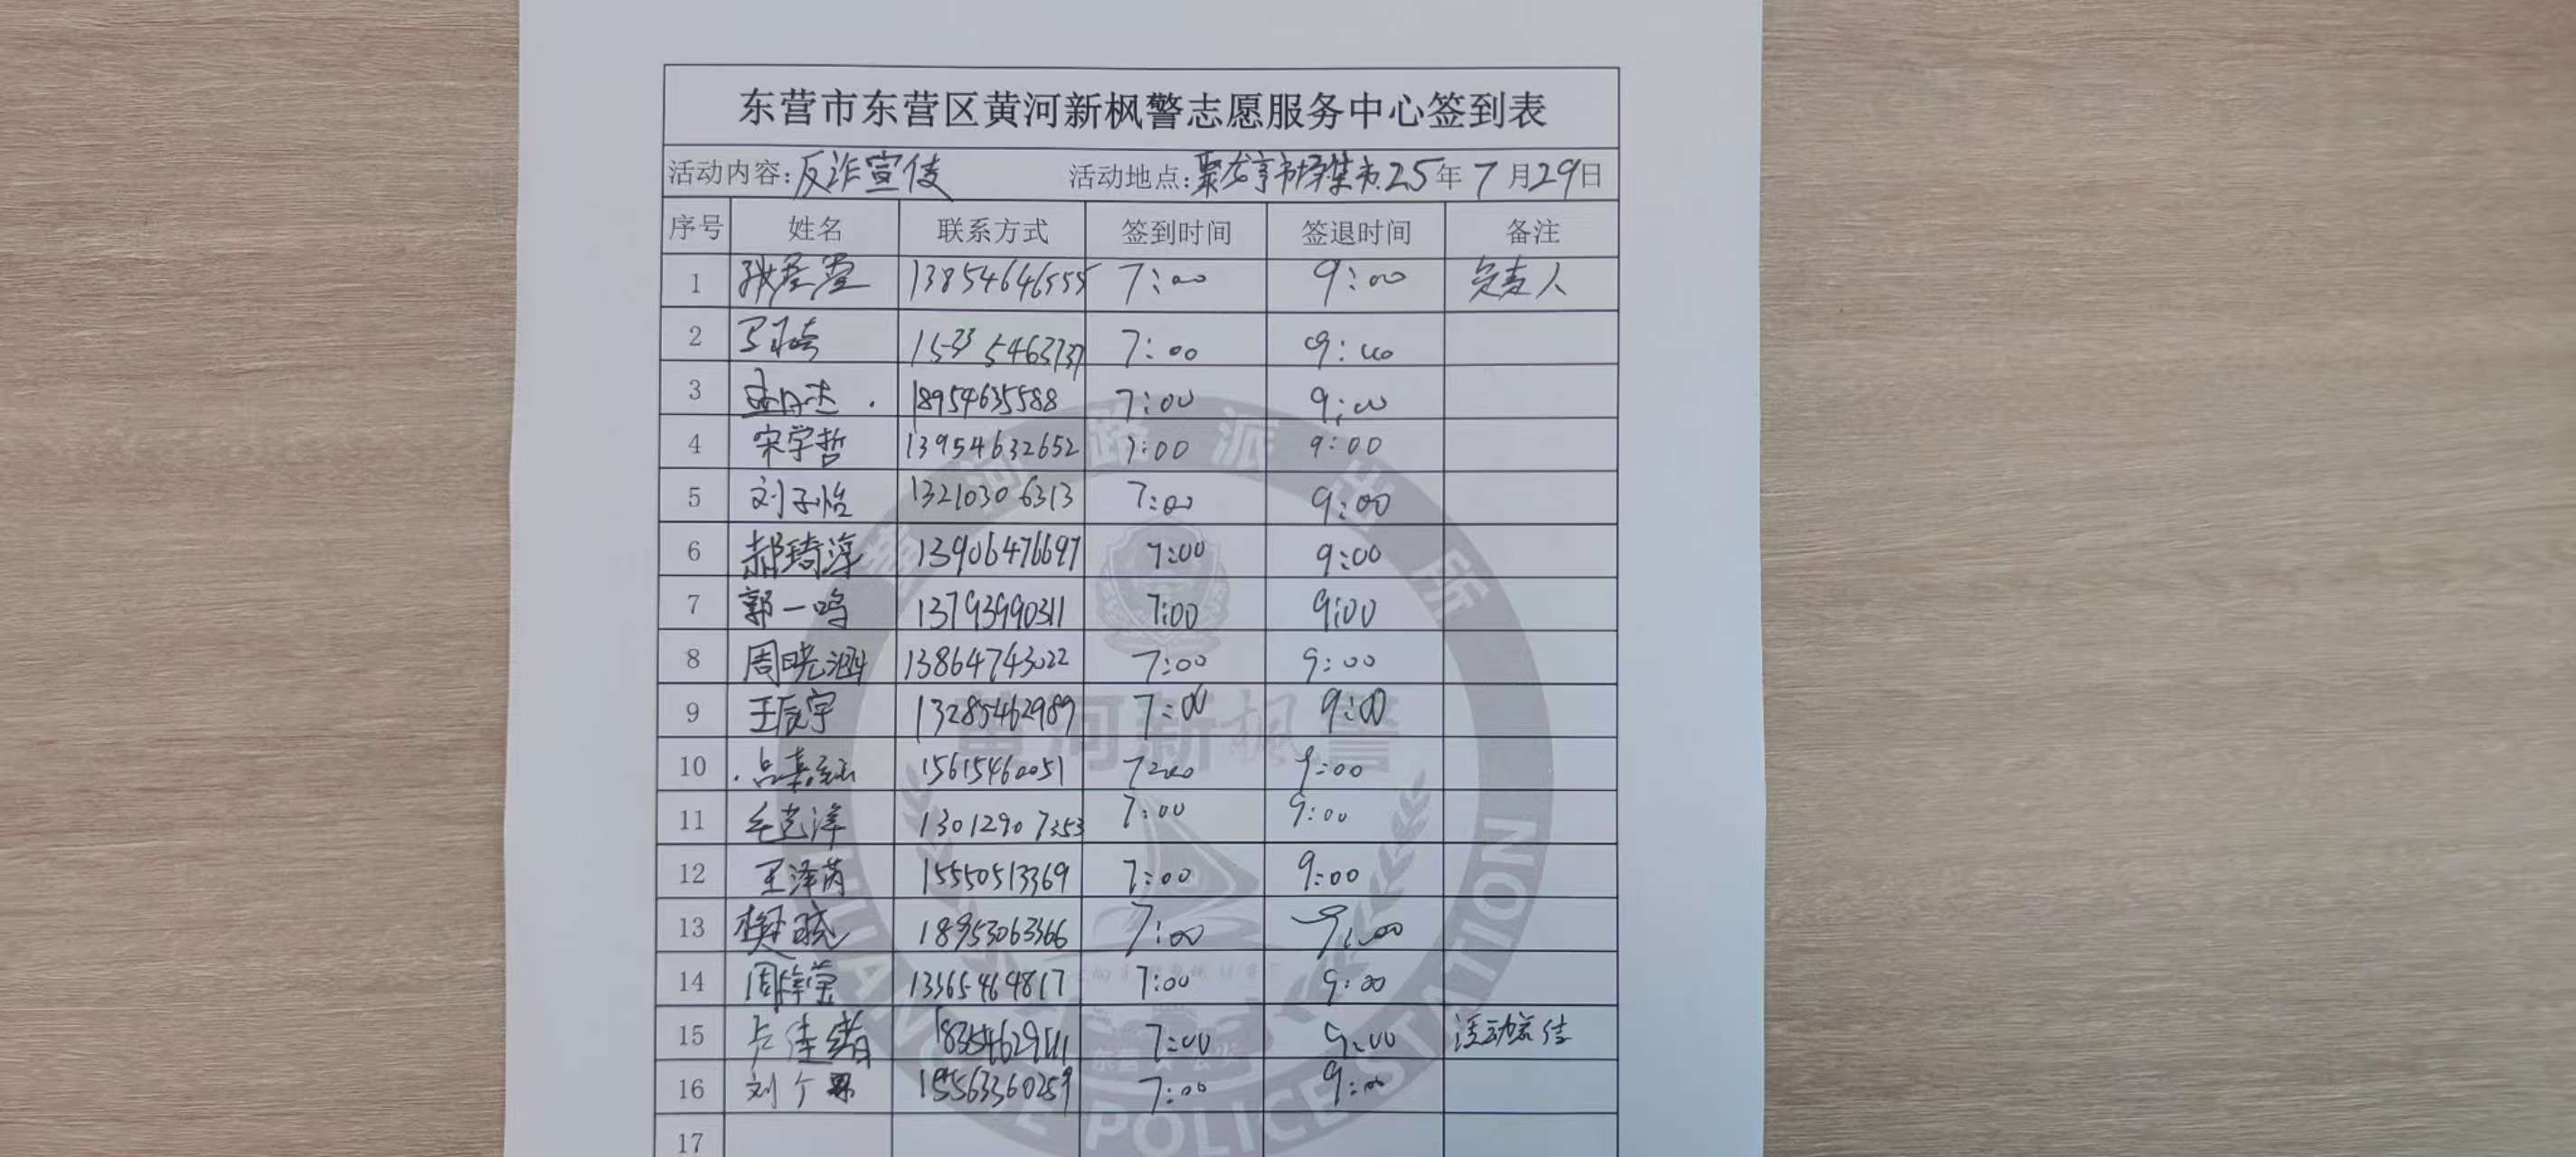 东营市东营区黄河新枫警志愿服务中心签到表
活动内容:反诈宣传 活动地点:聚龙亨市场集市.25年7月29日
序号 姓名 联系方式 签到时间 签退时间 备注
1 13854646555 7:00 9:00 负责人
2 15335463737 7:00 9:00
3 18954635588 7:00 9:00
4 宋学哲 13954632652 7:00 9:00
5 刘子怡 13210306313 7:00 9:00
6 郝琦淳 13906476697 7:00 9:00
7 郭一鸣 13793990311 7:00 9:00
8 周晓涵 13864743022 7:00 9:00
9 王辰宇 13285462989 7:00 9:00
10 15615460051 7:00 9:00
11 毛艺洋 13012907353 7:00 9:00
12 王泽芮 15550513369 7:00 9:00
13 樊晓 18953063366 7:00 9:00
14 周 莹 13365464817 7:00 9:00
15 佳绪 7:00 9:00 活动宣传
16 刘 15563360259 7:00 9:00
17
黄河路派出所
黄河新枫警
HUANGHE POLICE STATION